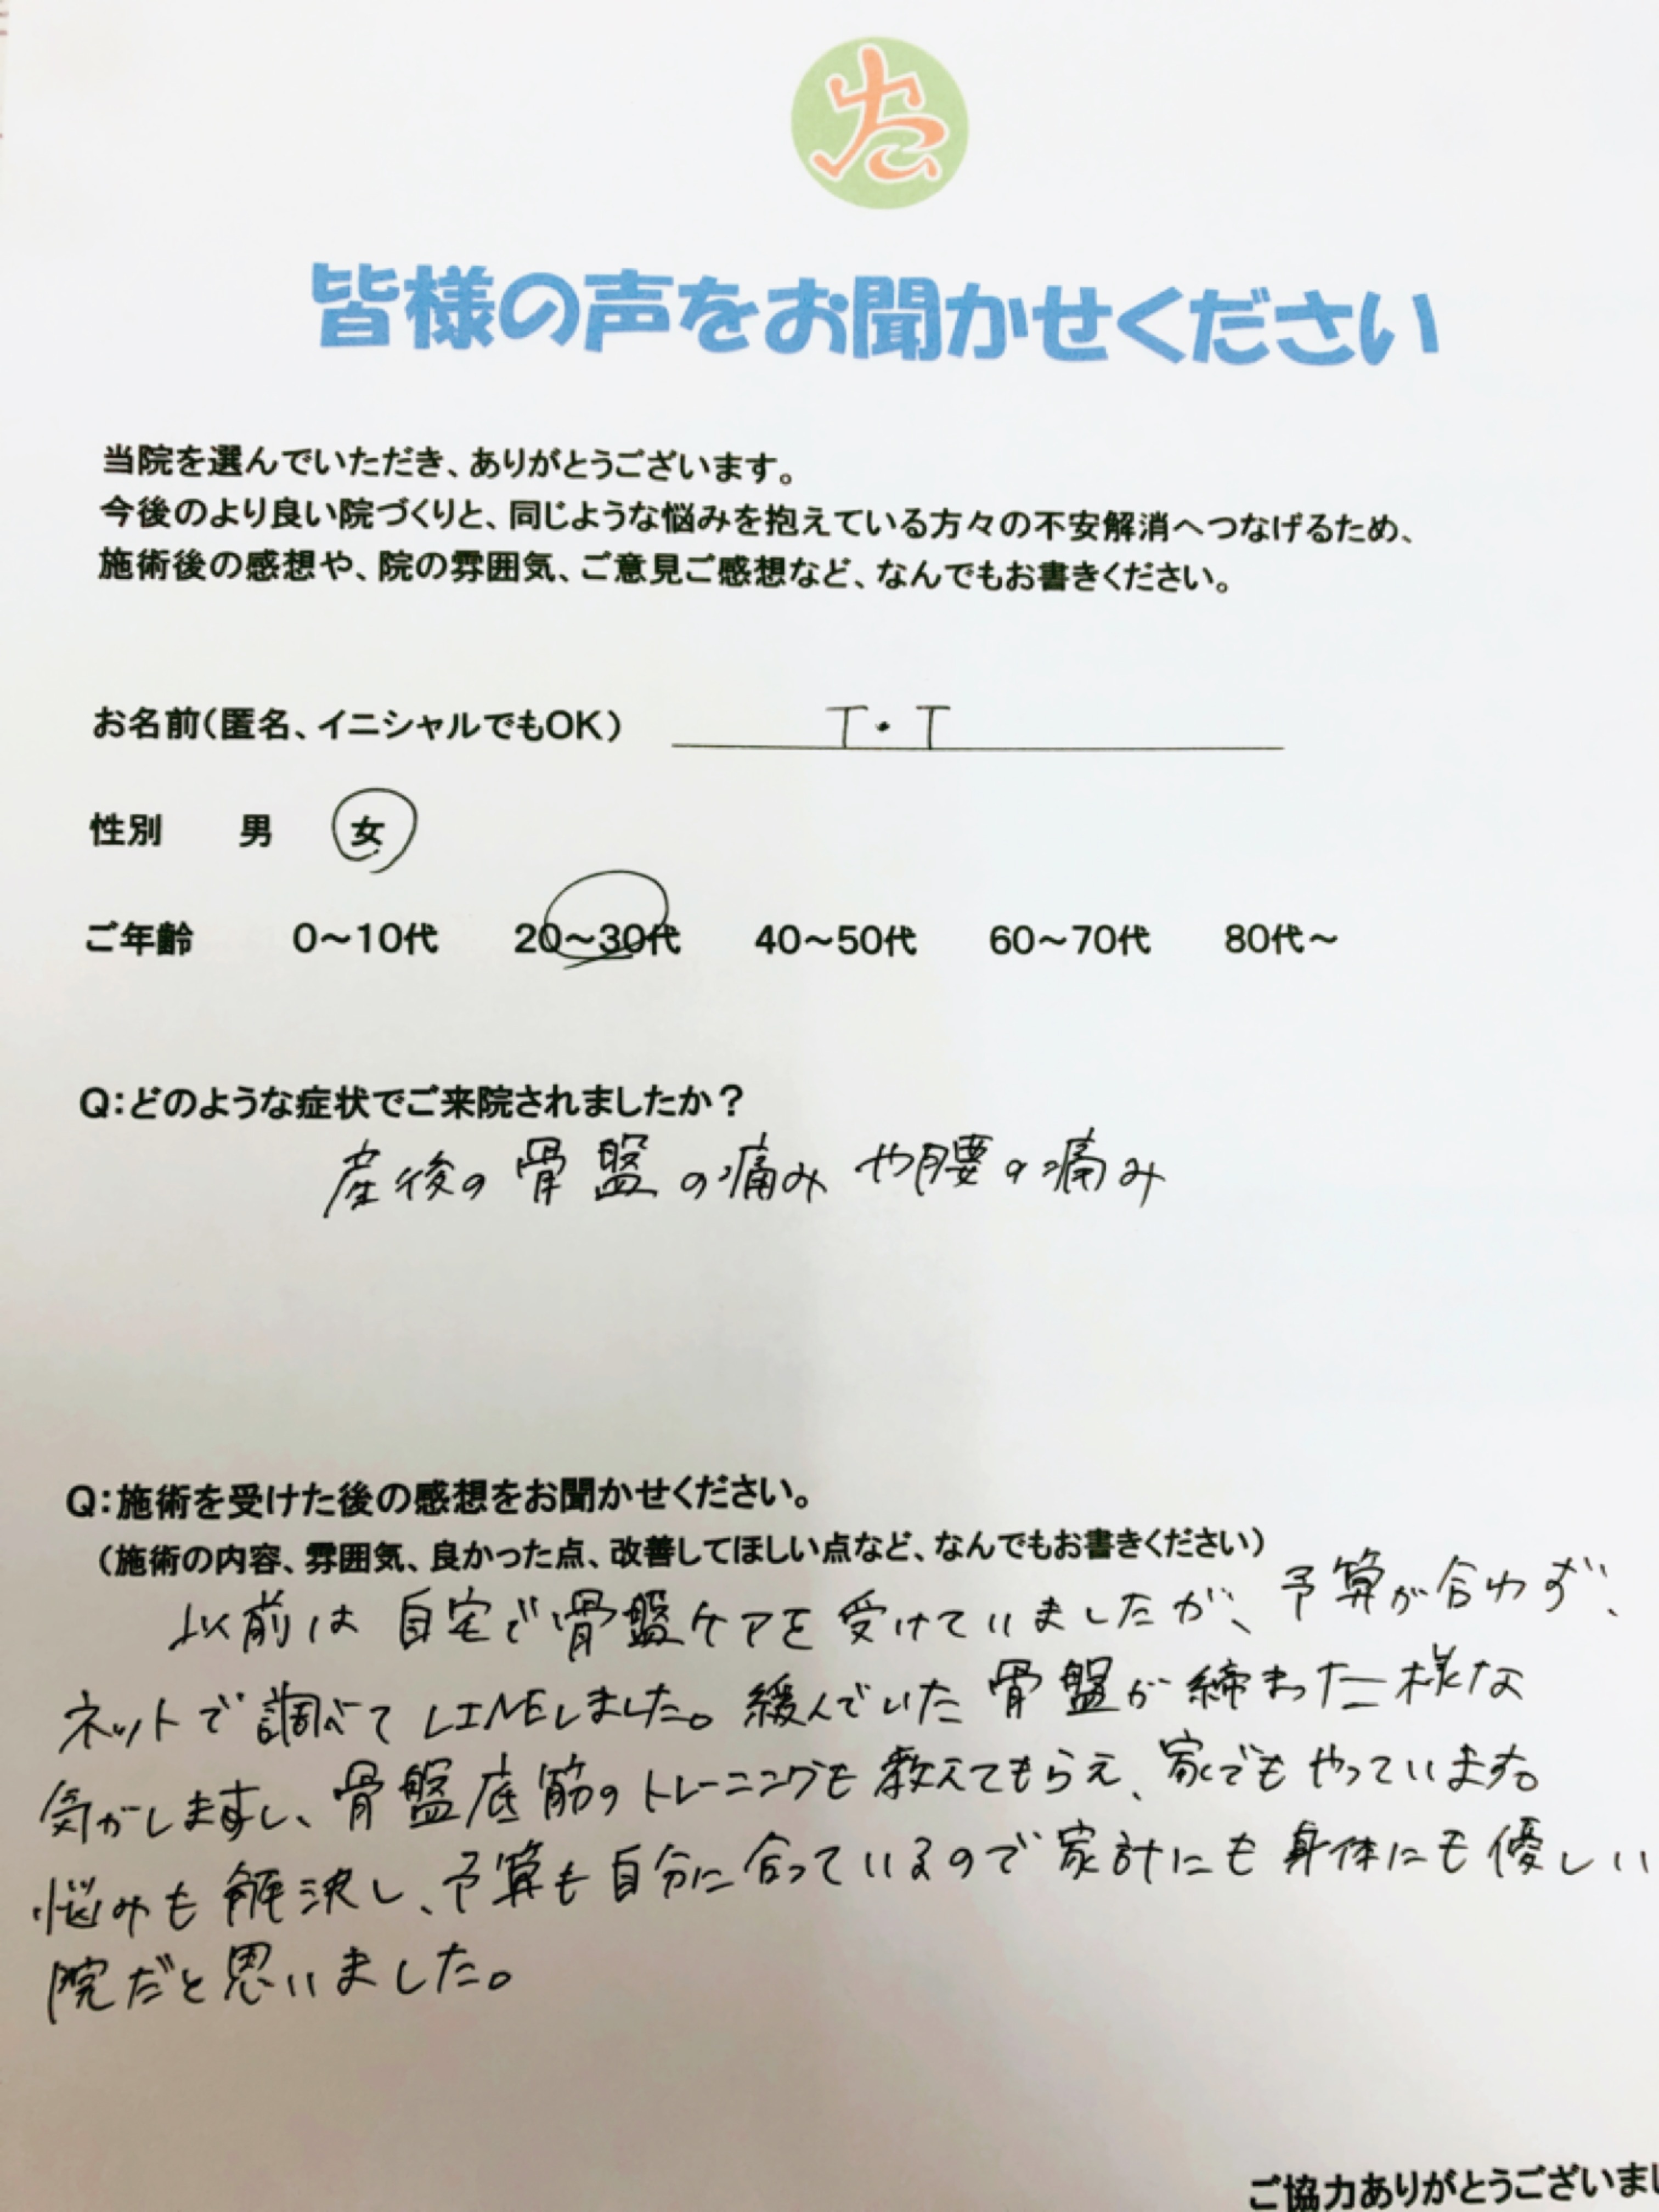 皆様の声をお聞かせください
当院を選んでいただき、ありがとうございます。
今後のより良い院づくりと、同じような悩みを抱えている方々の不安解消へつなげるため、
施術後の感想や、院の雰囲気、ご意見ご感想など、なんでもお書きください。
お名前（匿名、イニシャルでもOK） T・T
性別 男 女
ご年齢 0～10代 20～30代 40～50代 60～70代 80代～
Q：どのような症状でご来院されましたか？
産後の骨盤の痛みや腰の痛み
Q：施術を受けた後の感想をお聞かせください。
（施術の内容、雰囲気、良かった点、改善してほしい点など、なんでもお書きください）
以前は自宅で骨盤ケアを受けていましたが、予算が合わず、
ネットで調べてLINEしました。緩んでいた骨盤が締まった様な
気がしますし、骨盤底筋のトレーニングも教えてもらえ、家でもやっています。
悩みも解決し、予算も自分に合っているので家計にも身体にも優しい
院だと思いました。
ご協力ありがとうございまし